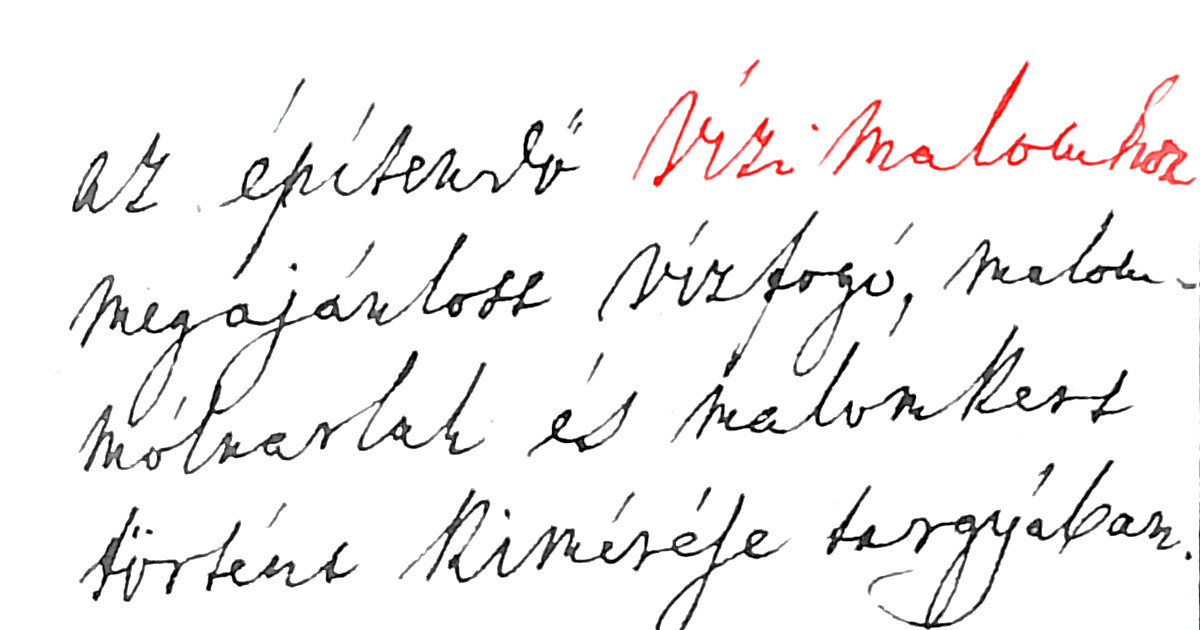 az építendő vízi malomhoz
megajánlott vízfogó, malom-
mólnarlak és malomkert
történt kimérése targyában.